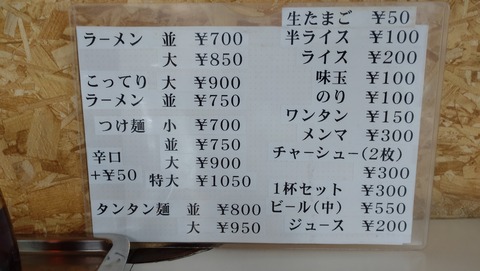 ラーメン 並 ￥700
大 ￥850
こってり 大 ￥900
ラーメン 並 ￥750
つけ麺 小 ￥700
並 ￥750
辛口 大 ￥900
+￥50 特大 ￥1050
タンタン麺 並 ￥800
大 ￥950
生たまご ￥50
半ライス ￥100
ライス ￥200
味玉 ￥100
のり ￥100
ワンタン ￥150
メンマ ￥300
チャーシュー(2枚)
￥300
1杯セット ￥300
ビール(中) ￥550
ジュース ￥200